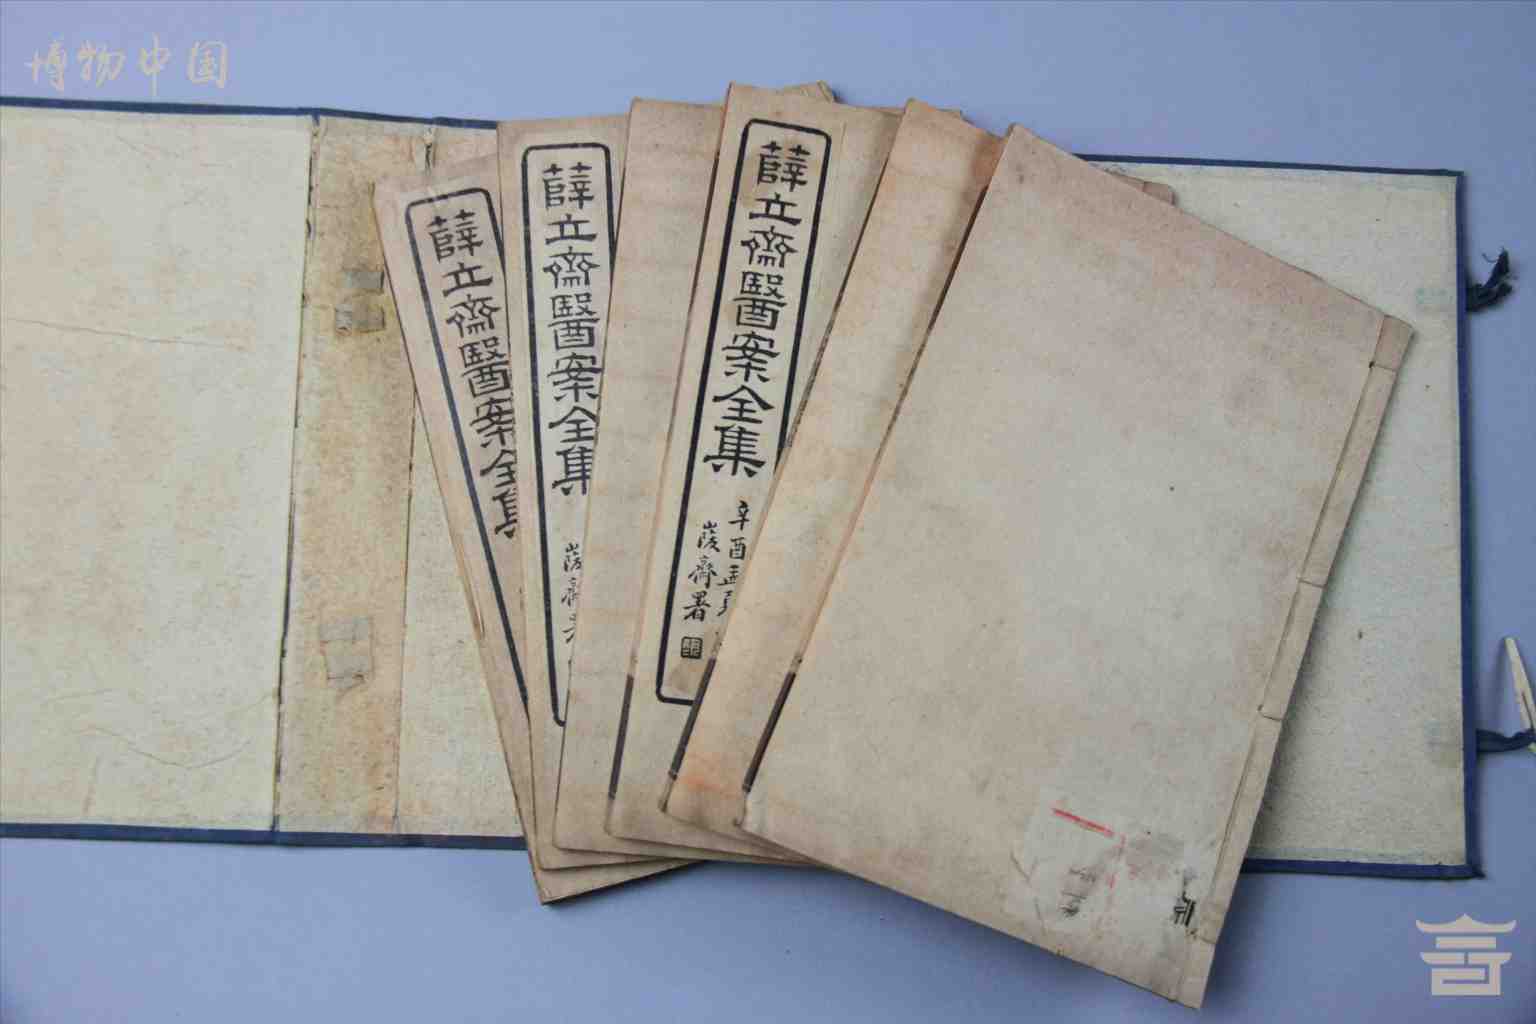 博物中国
薛立齋醫案全集
薛立齋醫案全集
薛立齋醫案全集
辛酉孟夏
署